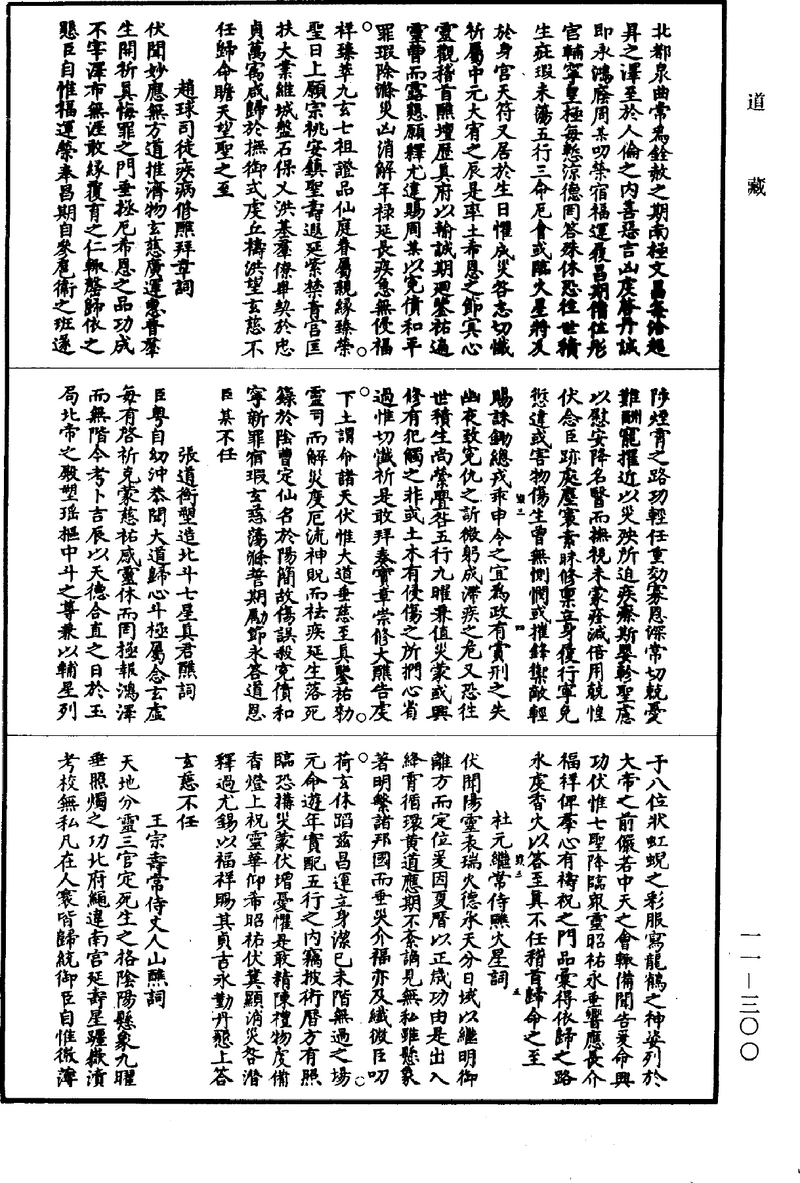 道藏
北都泉曲常為銓赦之期南極文昌每洽超
昇之澤至於人倫之內善惡吉凶虔啓丹誠
即永鴻廕周某叨榮宿福運履昌期備位彤
官輔寧皇極每慙涼德罔答殊休恐往世積
生疵瑕未蕩五行三命厄會或臨火星將及
於身宮天符又居於生日懼成災咎志切懺
祈屬中元大宥之辰是率土希恩之節冥心
靈觀稽首醮壇歷真府以輸誠期迴鑒祐遍
靈曹而露懇願釋尤違賜周某以冤債和平
罪瑕除滌災凶消解年祿延長疾恙無侵福
祥臻萃九玄七祖證品仙庭眷屬親緣臻榮
聖日上願宗祧安鎮聖壽遐延紫禁青宮匡
扶大業維城盤石保乂洪基羣僚畢契於忠
貞萬㝢咸歸於撫御式虔丘禱洪望玄慈不
任歸命瞻天望聖之至
趙球司徒疾病修醮拜章詞
伏聞妙應無方道推濟物玄慈廣運惠普羣
生開祈真悔罪之門垂拯厄希恩之品功成
不宰澤布無涯敢緣覆育之仁輒罄歸依之
懇臣自惟福運榮奉昌期自參麾衞之班遂
陟煙霄之路功輕任重効寡恩深常切兢憂
難酬寵擢近以災殃所迫疾瘵斯嬰軫聖慮
以慰安降名醫而撫視未蒙痊減倍用兢惶
伏念臣跡處塵寰素昧修稟立身履行寧免
愆違或害物傷生曾無惻憫或摧鋒禦敵輕
賜誅鋤總戎乖申令之宜為政有賞刑之失
幽夜致冤仇之訴微躬成滯疾之危又恐往
世積生尚縈舋咎五行九曜兼值災蒙或興
修有犯觸之非或土木有侵傷之所捫心省
過惟切懺祈是敢拜奏寶章崇修大醮告虔
下土謂命諸天伏惟大道垂慈至真鑒祐勑
靈司而解災度厄流神貺而祛疾延生落死
籙於陰曹定仙名於陽簡故傷誤殺冤債和
寧新罪宿瑕玄慈蕩滌誓期勵節永答道恩
臣某不任
張道衡塑造北斗七星真君醮詞
臣粤自幼沖恭聞大道歸心斗極屬念玄虛
每有啓祈克蒙慈祐感靈休而罔極報鴻澤
而無階今考卜吉辰以天德合直之日於玉
局北帝之殿塑瑶樞中斗之尊兼以輔星列
于八位狀虹蜺之彩服寫龍鶴之神姿列於
大帝之前儼若中天之會輒備聞告爰命興
功伏惟七聖降臨衆靈昭祐永垂響應長介
福祥俾羣心有禱祝之門品彙得依歸之路
永虔香火以答至真不任稽首歸命之至
杜元繼常侍醮火星詞
伏聞陽靈表瑞火德永天分日域以繼明御
離方而定位爰因夏曆以正歲功由是出入
絳霄循環黃道應期不紊謫見無私雖懸象
著明繫諸邦國而垂災介福亦及纖微臣叨
荷玄休蹈茲昌運立身潔已未階無過之場
元命遊年實配五行之內竊披術曆方有照
臨恐搆災蒙伏增憂懼是敢精陳禮物虔備
香燈上祝靈華仰希昭祐伏冀顯消災咎潛
釋過尤錫以福祥賜其貞吉永勤丹懇上答
玄慈不任
王宗壽常侍丈人山醮詞
天地分靈三官定死生之格陰陽懸象九曜
垂照燭之功北府繩違南宮延壽星躔嶽瀆
考校無私凡在人寰皆歸統御臣自惟微薄
一一—三〇〇